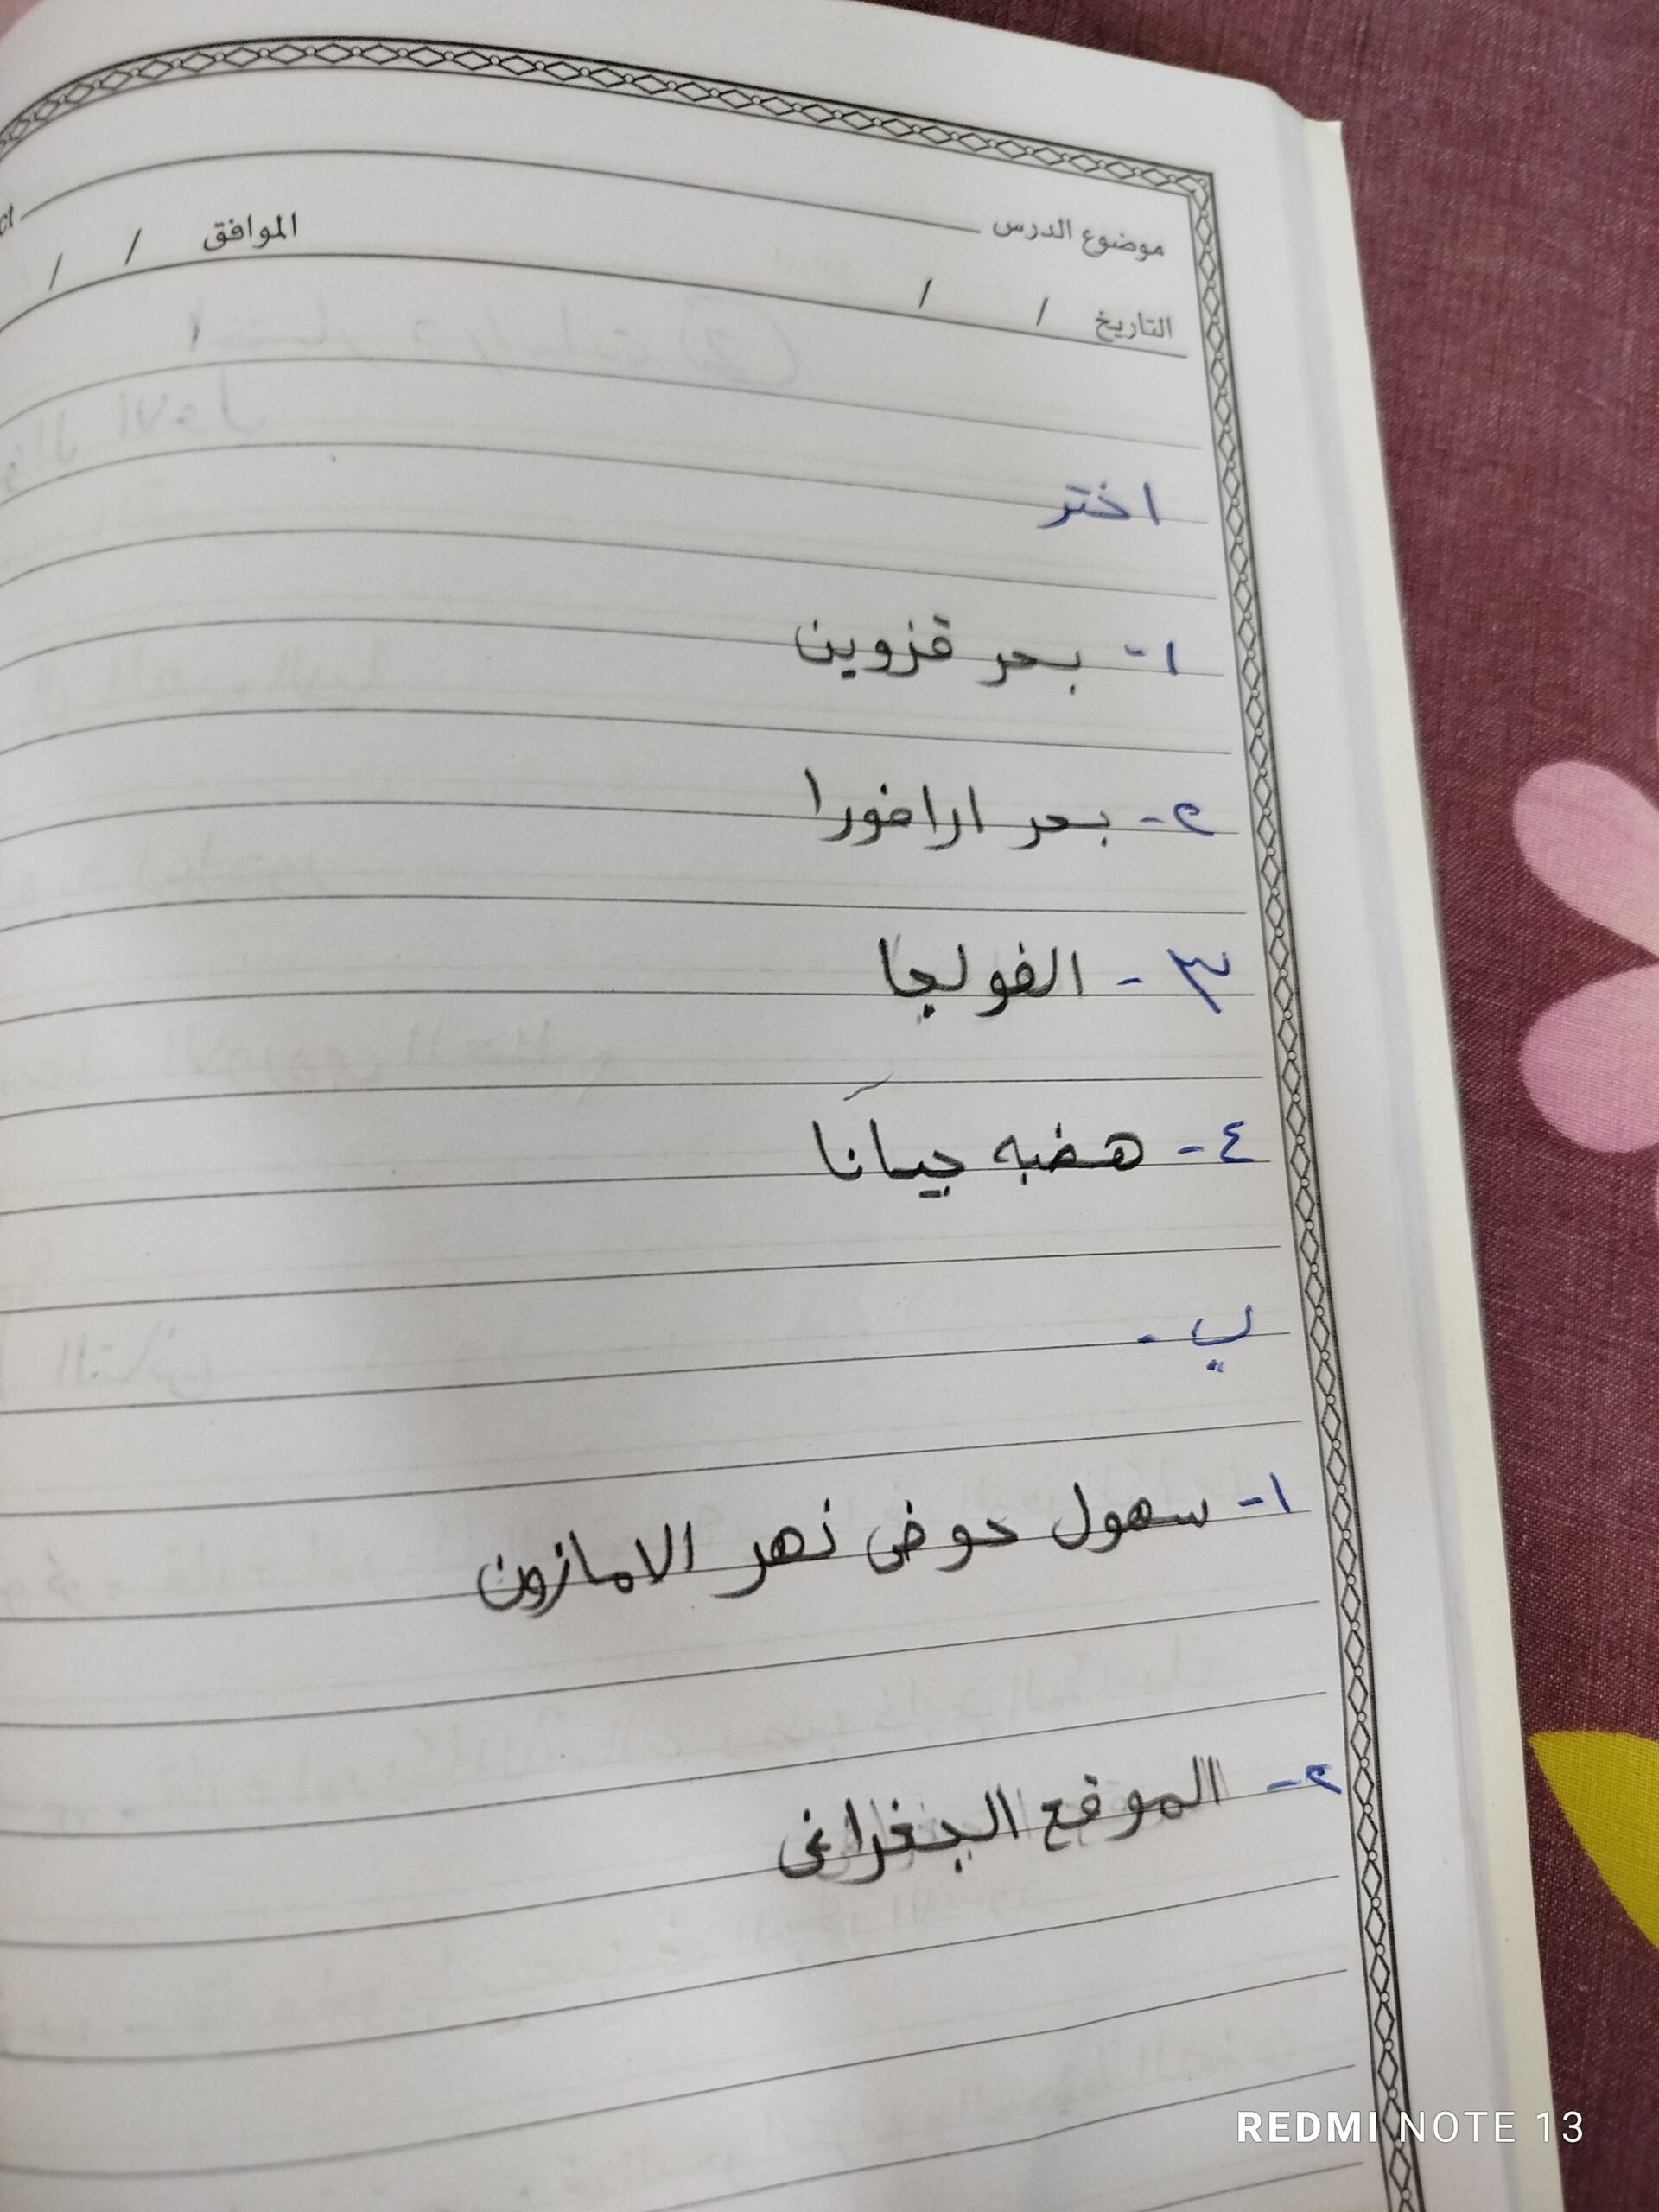 موضوع الدرس
التاريخ / / الموافق / /
اختر
١- بحر قزوين
٢- بحر ارافورا
٣- الفولجا
٤- هضبه جيانا
ب -
١- سهول حوض نهر الامازون
٢- الموقع الجغرافى
REDMI NOTE 13